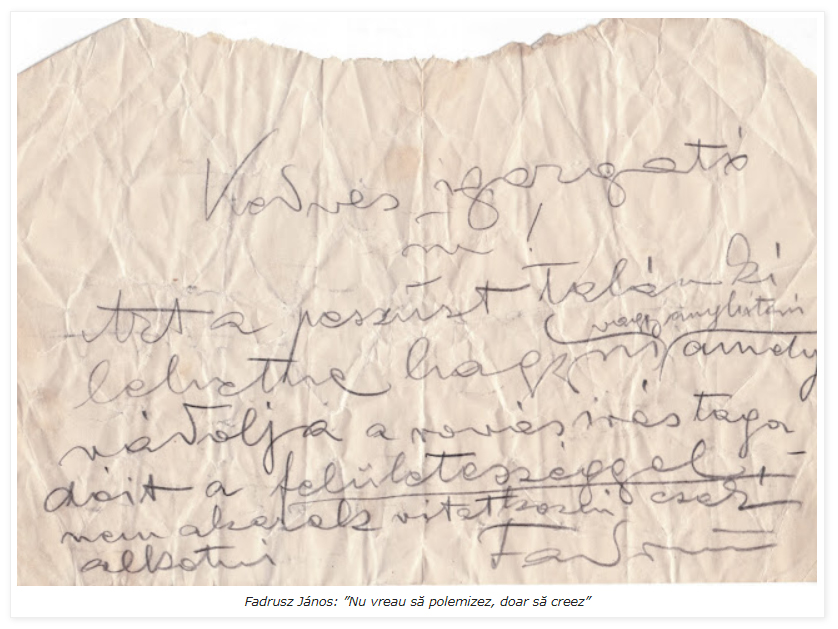 Kedves igazgató
úr!
Azt a passzust talán ki
vagy árnyékítani
lehetne hagyni, amely
vádolja a rovásírás taga
dóit a felületességgel,
nem akarok vitatkozni csak
alkotni Fadrusz
Fadrusz János: "Nu vreau să polemizez, doar să creez"